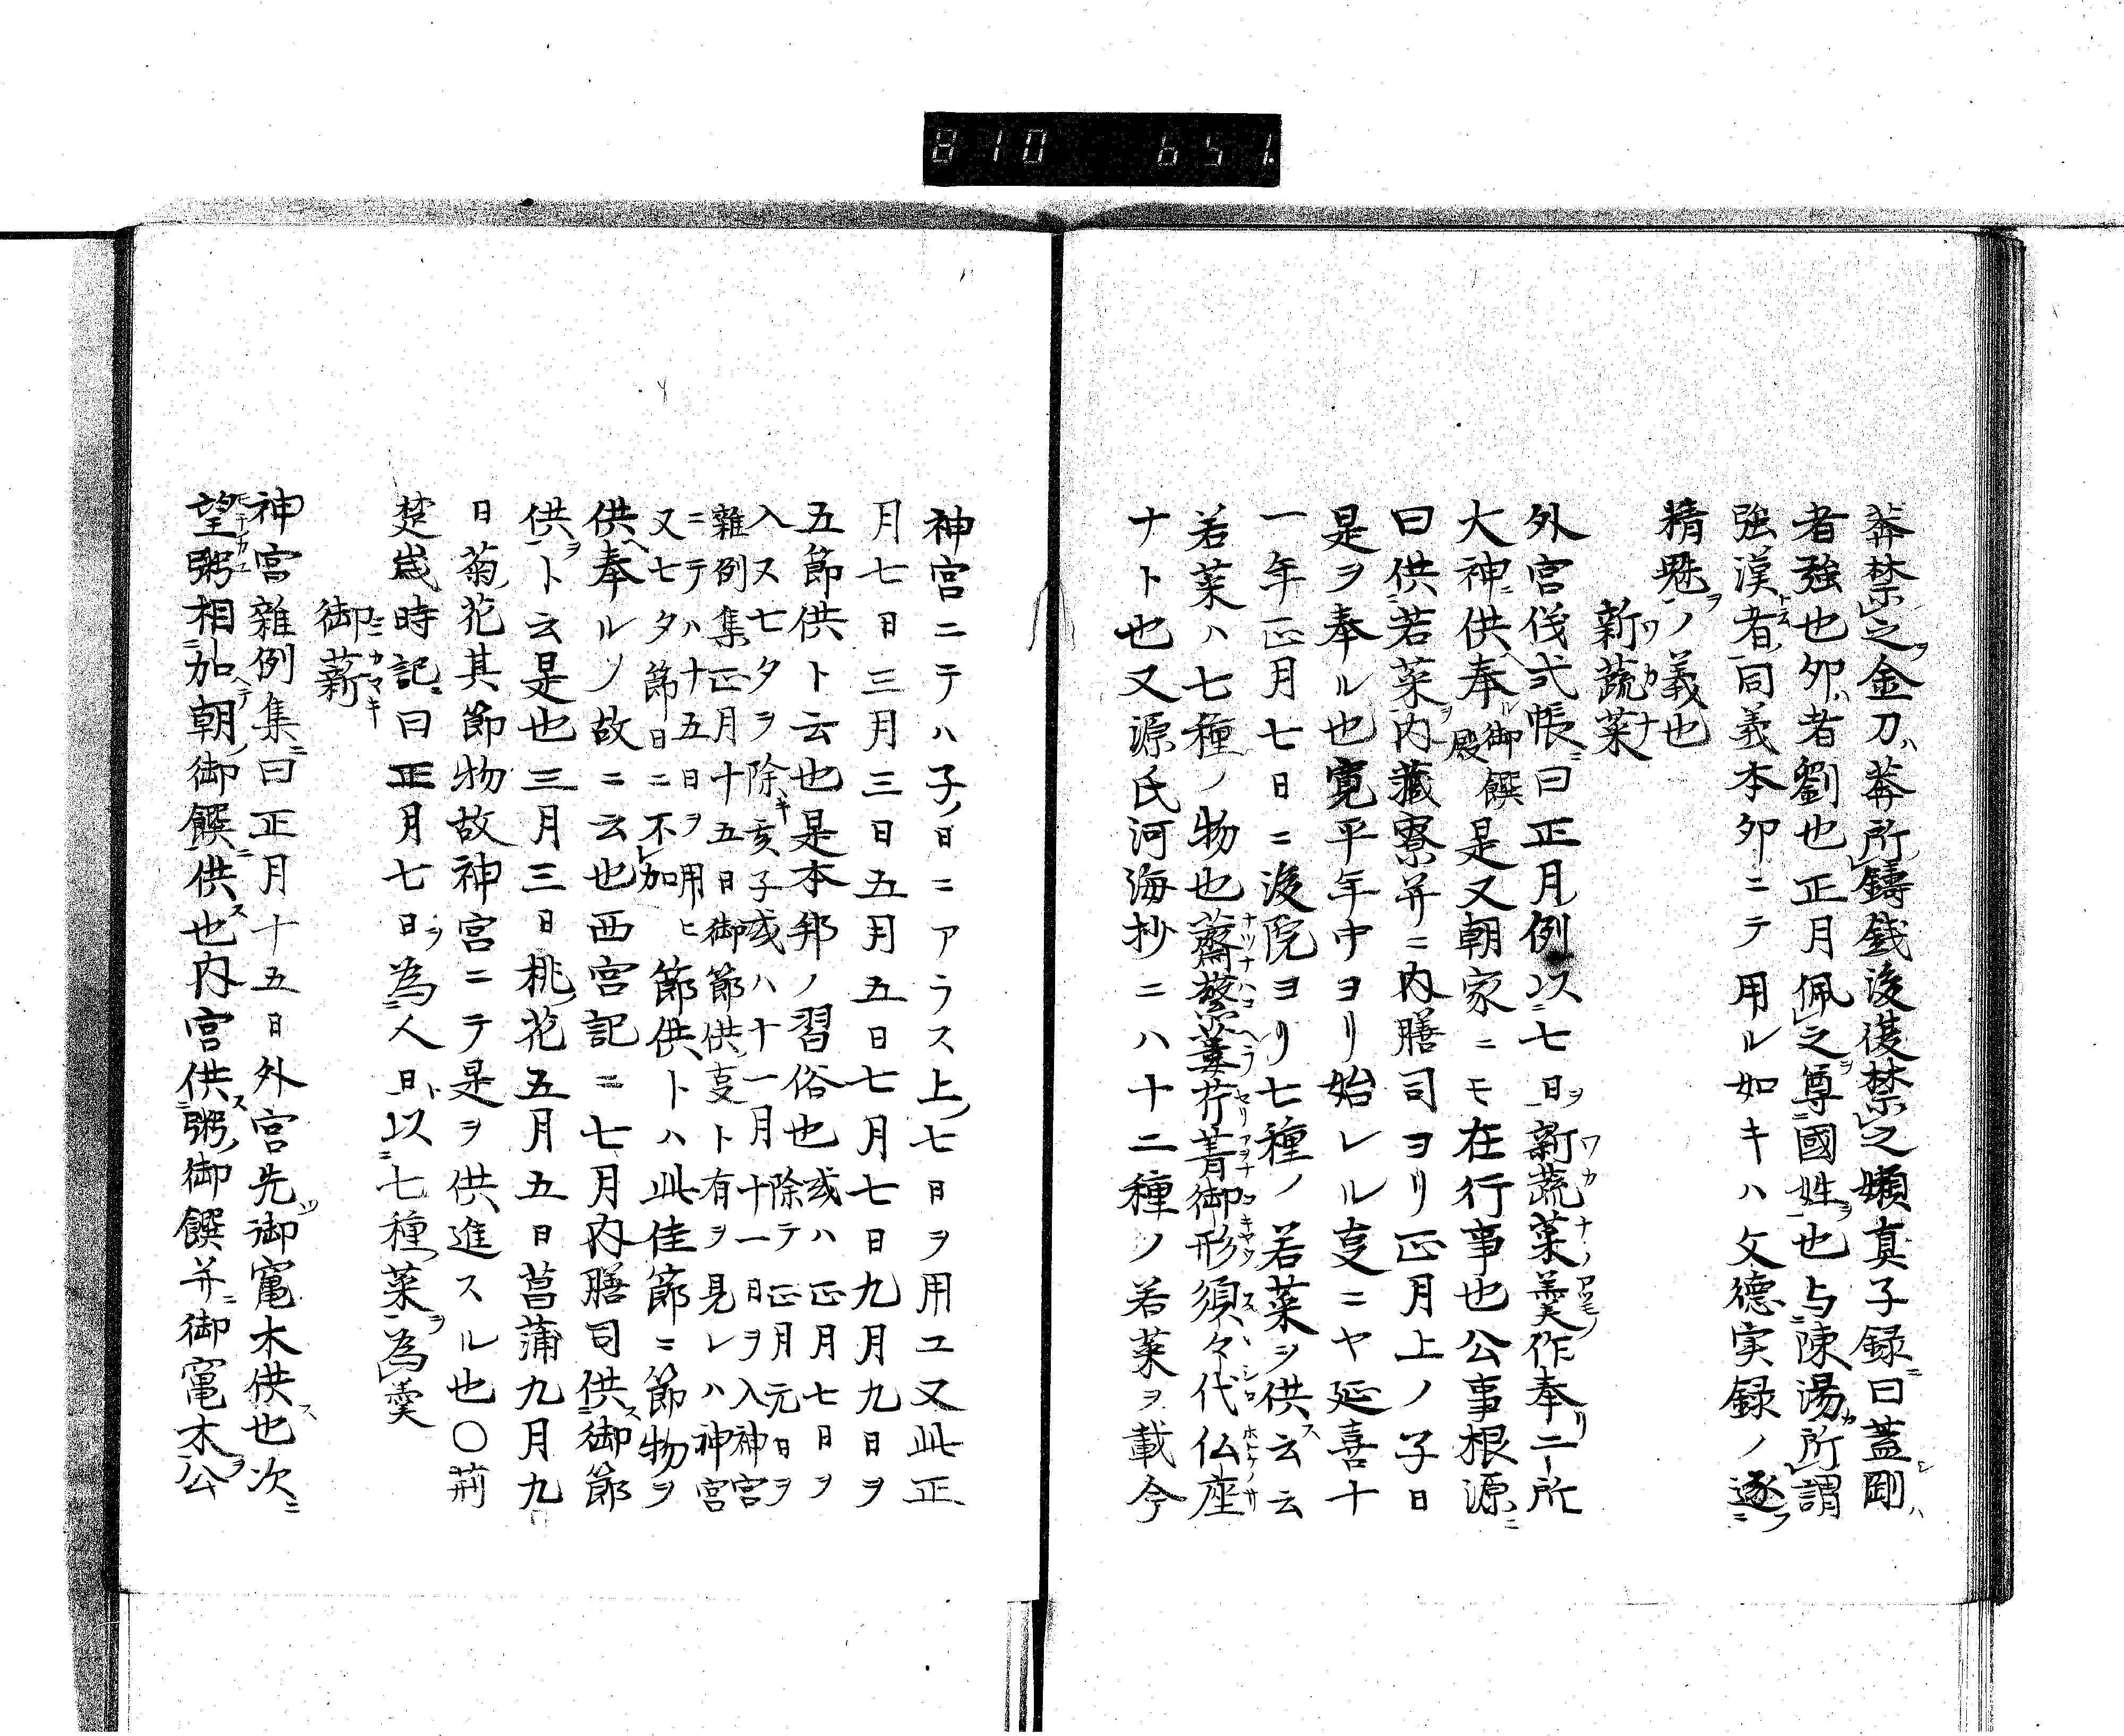 810 651.
莽禁之金刀莽所鋳銭後復禁之嬾真子録曰蓋剛
者強也夘者劉也正月佩之尊國姓也与陳湯所謂
強漢者同義本夘ニテ用ル如キハ文徳実録ノ逐
精魁ノ義也
新蔬菜
外宮儀式帳曰正月例以七日新蔬菜羹作奉二所
大神供奉御饌殿是又朝家ニモ在行事也公事根源
曰供若菜内蔵寮并ニ内膳司ヨリ正月上ノ子日
是ヲ奉ル也寛平年中ヨリ始レル事ニヤ延喜十
一年正月七日ニ後院ヨリ七種ノ若菜ヲ供云云
若菜ハ七種ノ物也薺蘩蔞芹菁御形須々代仏座
ナト也又源氏河海抄ニハ十二種ノ若菜ヲ載今
神宮ニテハ子日ニアラス上七日ヲ用ユ又此正
月七日三月三日五月五日七月七日九月九日ヲ
五節供ト云也是本邦ノ習俗也或ハ正月七日ヲ
除テ正月元日ヲ
入ス七夕ヲ除キ亥子或ハ十一月十一日ヲ入神宮
雑例集正月十五日御節供事ト有ヲ見レハ神宮
ニテハ十五日ヲ用ヒ
又七夕節日ニ不加節供トハ此佳節ニ節物ヲ
供奉ルノ故ニ云也西宮記ニ七月内膳司供御節
供ト云是也三月三日桃花五月五日菖蒲九月九
日菊花其節物故神宮ニテ是ヲ供進スル也〇荊
楚歳時記曰正月七日為人日以七種菜為羹
御薪
神宮雑例集曰正月十五日外宮先御竃木供也次
望粥相加朝御饌供也内宮供粥御饌并御竃木公